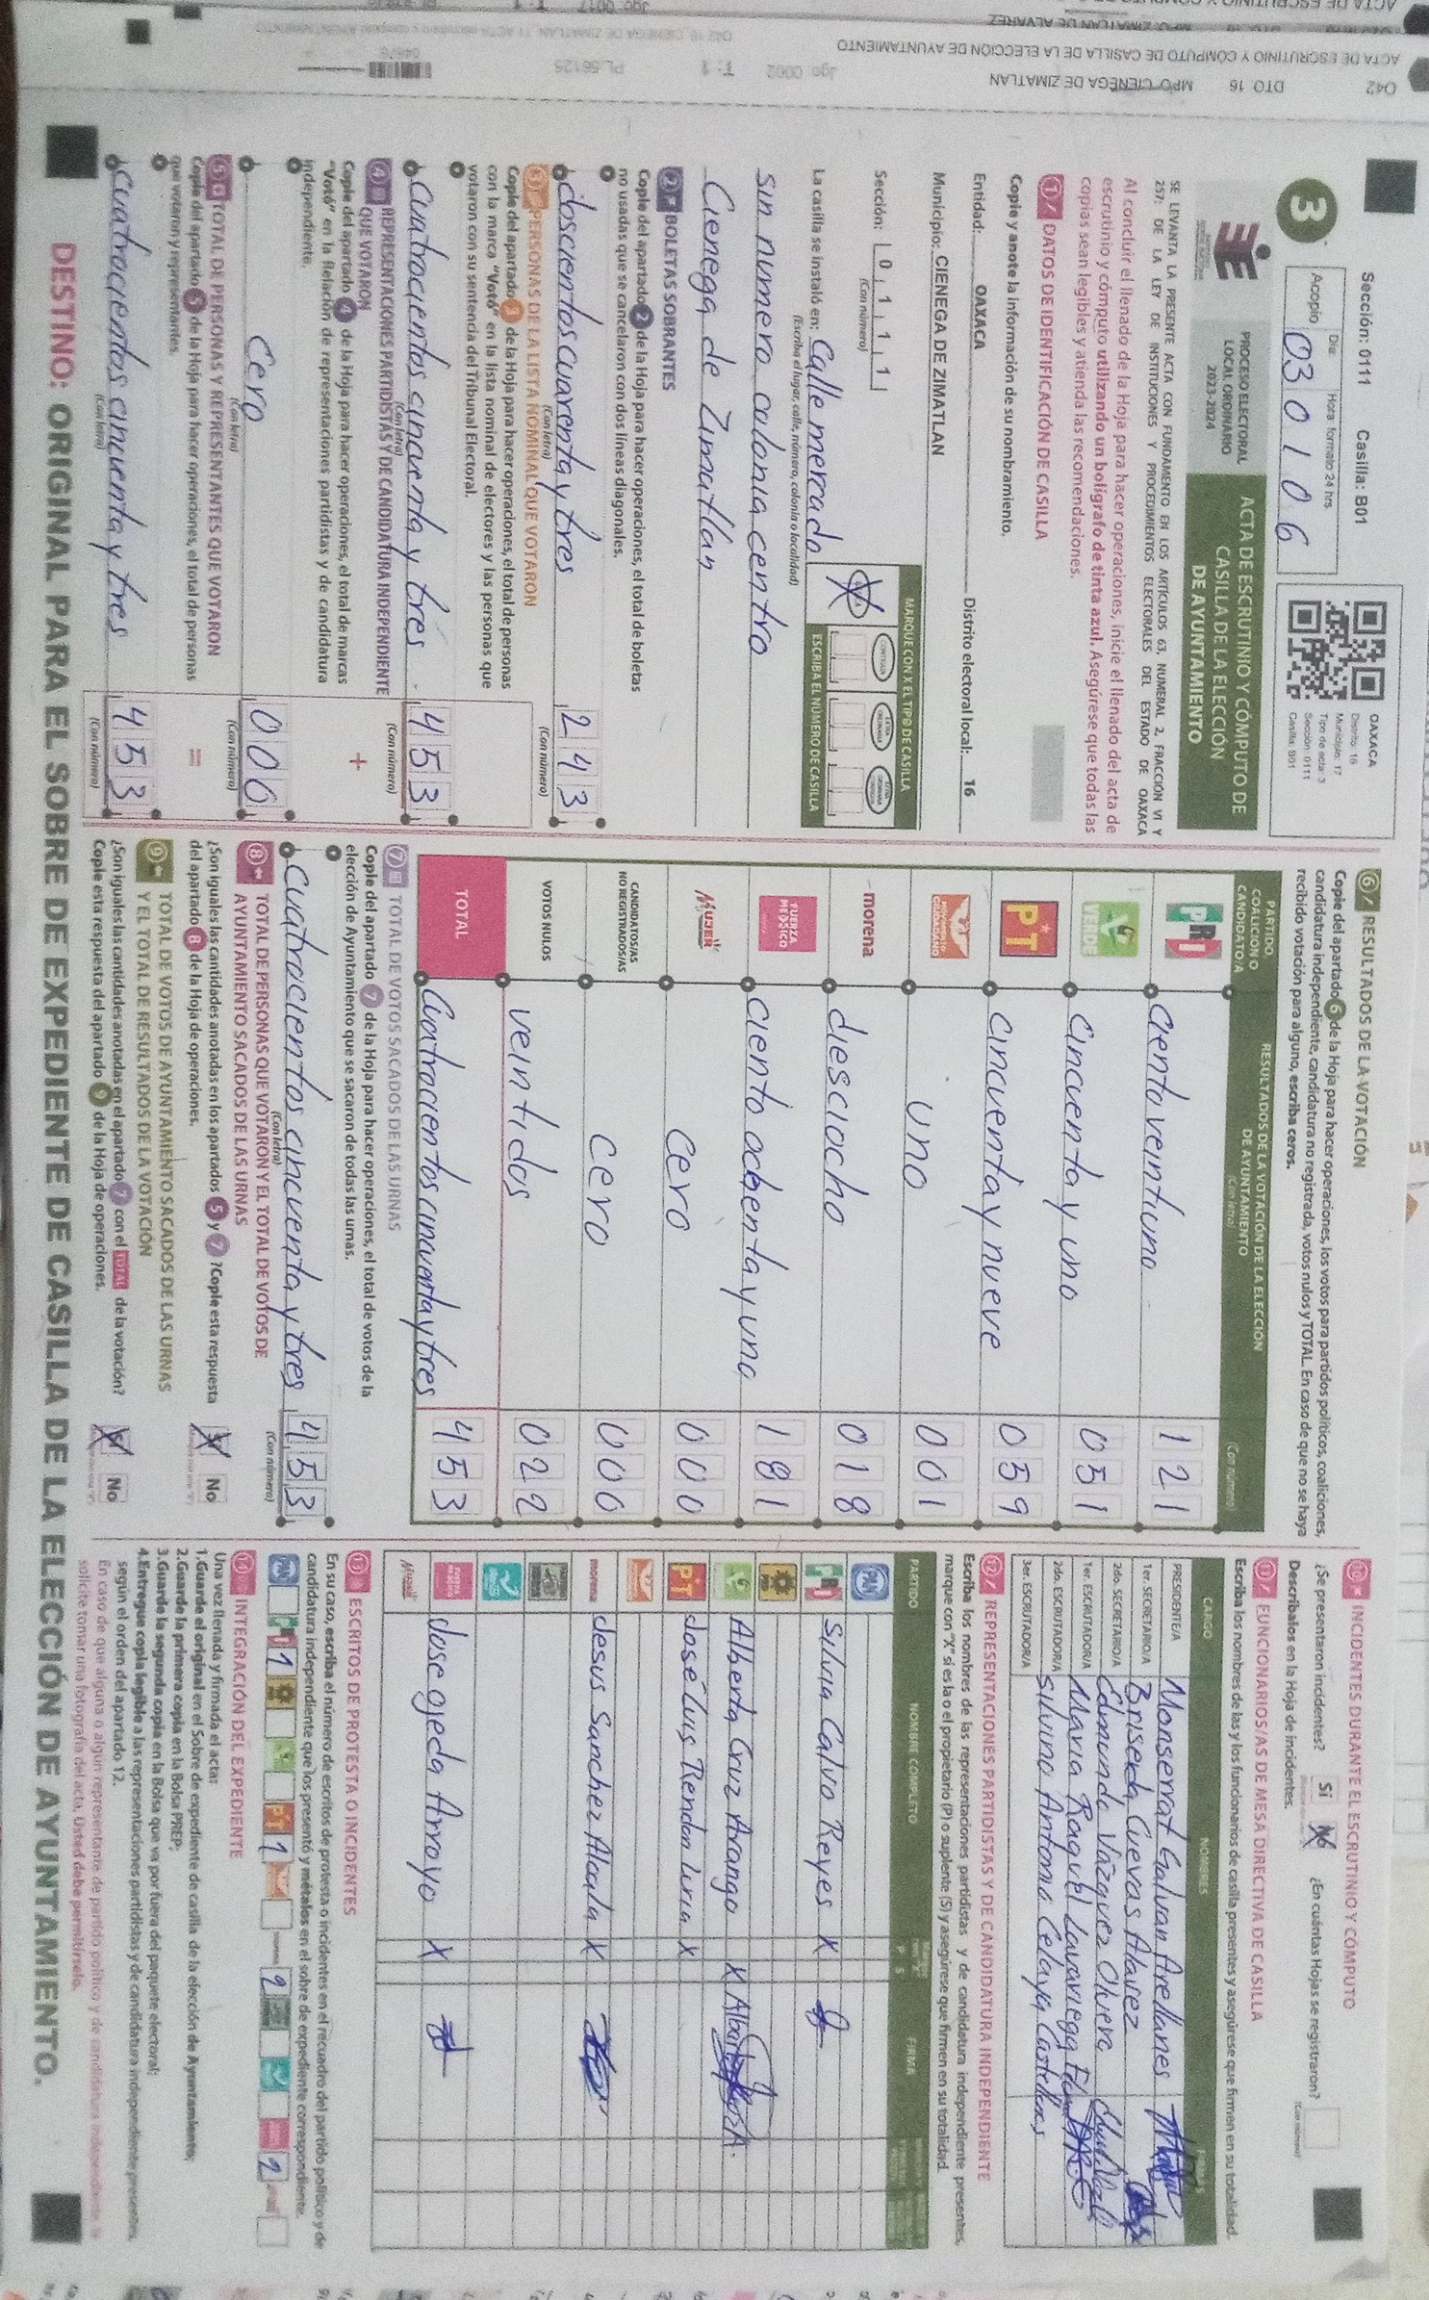 O42 DTO 16 MPO CIENEGA DE ZIMATLAN
ACTA DE ESCRUTINIO Y CÓMPUTO DE CASILLA DE LA ELECCIÓN DE AYUNTAMIENTO
Jgo 0002 T: 1 PL 56125
Sección: 0111 Casilla: B01
3
Día: Hora: formato 24 hrs
Acopio 03 01 06
OAXACA
Distrito: 16
Municipio: 17
Tipo de acta: 3
Sección: 0111
Casilla: B01
PROCESO ELECTORAL
LOCAL ORDINARIO
2023-2024
ACTA DE ESCRUTINIO Y CÓMPUTO DE
CASILLA DE LA ELECCIÓN
DE AYUNTAMIENTO
SE LEVANTA LA PRESENTE ACTA CON FUNDAMENTO EN LOS ARTÍCULOS 63, NUMERAL 2, FRACCIÓN VI Y
257; DE LA LEY DE INSTITUCIONES Y PROCEDIMIENTOS ELECTORALES DEL ESTADO DE OAXACA
Al concluir el llenado de la Hoja para hacer operaciones, inicie el llenado del acta de
escrutinio y cómputo utilizando un bolígrafo de tinta azul. Asegúrese que todas las
copias sean legibles y atienda las recomendaciones.
1 DATOS DE IDENTIFICACIÓN DE CASILLA
Copie y anote la información de su nombramiento.
Entidad: OAXACA Distrito electoral local: 16
Municipio: CIENEGA DE ZIMATLAN
Sección: 0 1 1 1
(Con número)
MARQUE CON X EL TIPO DE CASILLA
ESCRIBA EL NÚMERO DE CASILLA
La casilla se instaló en: Calle mercado
(Escriba el lugar, calle, número, colonia o localidad)
sin numero colonia centro
Cienega de Zimatlán
2 BOLETAS SOBRANTES
Copie del apartado 2 de la Hoja para hacer operaciones, el total de boletas
no usadas que se cancelaron con dos líneas diagonales.
doscientos cuarenta y tres 243
(Con letra) (Con número)
3 PERSONAS DE LA LISTA NOMINAL QUE VOTARON
Copie del apartado 3 de la Hoja para hacer operaciones, el total de personas
con la marca "Votó" en la lista nominal de electores y las personas que
votaron con su sentencia del Tribunal Electoral.
cuatrocientos cincuenta y tres 453
(Con letra) (Con número)
4 REPRESENTACIONES PARTIDISTAS Y DE CANDIDATURA INDEPENDIENTE
QUE VOTARON
Copie del apartado 4 de la Hoja para hacer operaciones, el total de marcas
"Votó" en la Relación de representaciones partidistas y de candidatura
independiente.
+
cero 000
(Con letra) (Con número)
5 TOTAL DE PERSONAS Y REPRESENTANTES QUE VOTARON
Copie del apartado 5 de la Hoja para hacer operaciones, el total de personas
que votaron y representantes.
=
cuatrocientos cincuenta y tres 453
(Con letra) (Con número)
6 RESULTADOS DE LA VOTACIÓN
Copie del apartado 6 de la Hoja para hacer operaciones, los votos para partidos políticos, coaliciones,
candidatura independiente, candidatura no registrada, votos nulos y TOTAL. En caso de que no se haya
recibido votación para alguno, escriba ceros.
PARTIDO, COALICIÓN O CANDIDATO/A
RESULTADOS DE LA VOTACIÓN DE LA ELECCIÓN
DE AYUNTAMIENTO
(Con letra) (Con número)
PRI ciento veintiuno 121
VERDE cincuenta y uno 051
PT cincuenta y nueve 059
MOVIMIENTO CIUDADANO uno 001
morena diesciocho 018
FUERZA MEXICO ciento ochenta y uno 181
MUJER cero 000
CANDIDATOS/AS NO REGISTRADOS/AS cero 000
VOTOS NULOS veintidos 022
TOTAL cuatrocientos cincuenta y tres 453
7 TOTAL DE VOTOS SACADOS DE LAS URNAS
Copie del apartado 7 de la Hoja para hacer operaciones, el total de votos de la
elección de Ayuntamiento que se sacaron de todas las urnas.
cuatrocientos cincuenta y tres 453
(Con letra) (Con número)
8 TOTAL DE PERSONAS QUE VOTARON Y EL TOTAL DE VOTOS DE
AYUNTAMIENTO SACADOS DE LAS URNAS
¿Son iguales las cantidades anotadas en los apartados 5 y 7 ? Copie esta respuesta
del apartado 8 de la Hoja de operaciones.
No
9 TOTAL DE VOTOS DE AYUNTAMIENTO SACADOS DE LAS URNAS
Y EL TOTAL DE RESULTADOS DE LA VOTACIÓN
¿Son iguales las cantidades anotadas en el apartado 7 con el TOTAL de la votación?
Copie esta respuesta del apartado 9 de la Hoja de operaciones.
No
10 INCIDENTES DURANTE EL ESCRUTINIO Y CÓMPUTO
¿Se presentaron incidentes? Sí No ¿En cuántas Hojas se registraron?
(Con número)
Descríbalos en la Hoja de incidentes.
11 FUNCIONARIOS/AS DE MESA DIRECTIVA DE CASILLA
Escriba los nombres de las y los funcionarios de casilla presentes y asegúrese que firmen en su totalidad.
CARGO NOMBRES FIRMAS
PRESIDENTE/A Monserrat Galvan Arellanes
1er. SECRETARIO/A Briseida Cuevas Alavez
2do. SECRETARIO/A Edmundo Vázquez Olivera
1er. ESCRUTADOR/A Maria Raquel Lavariega
2do. ESCRUTADOR/A Silvino Antonio Celaya Castellanos
3er. ESCRUTADOR/A
12 REPRESENTACIONES PARTIDISTAS Y DE CANDIDATURA INDEPENDIENTE
Escriba los nombres de las representaciones partidistas y de candidatura independiente presentes,
marque con "X" si es la o el propietario (P) o suplente (S) y asegúrese que firmen en su totalidad.
PARTIDO NOMBRE COMPLETO P S FIRMA
PAN
PRI Silvia Calvo Reyes X
PRD
Alberta Cruz Arango X
PT José Luis Rendon Liria X
morena Jesus Sanchez Alcala X
Jose ojeda Arroyo X
13 ESCRITOS DE PROTESTA O INCIDENTES
En su caso, escriba el número de escritos de protesta o incidentes en el recuadro del partido político y de
candidatura independiente que los presentó y métalos en el sobre de expediente correspondiente.
PAN PRI 1 PT 1 2 2
14 INTEGRACIÓN DEL EXPEDIENTE
Una vez llenada y firmada el acta:
1.Guarde el original en el Sobre de expediente de casilla de la elección de Ayuntamiento;
2.Guarde la primera copia en la Bolsa PREP;
3.Guarde la segunda copia en la Bolsa que va por fuera del paquete electoral;
4.Entregue copia legible a las representaciones partidistas y de candidatura independiente presentes,
según el orden del apartado 12.
En caso de que alguna o algún representante de partido político y de candidatura independiente le
solicite tomar una fotografía del acta, Usted debe permitírselo.
DESTINO: ORIGINAL PARA EL SOBRE DE EXPEDIENTE DE CASILLA DE LA ELECCIÓN DE AYUNTAMIENTO.